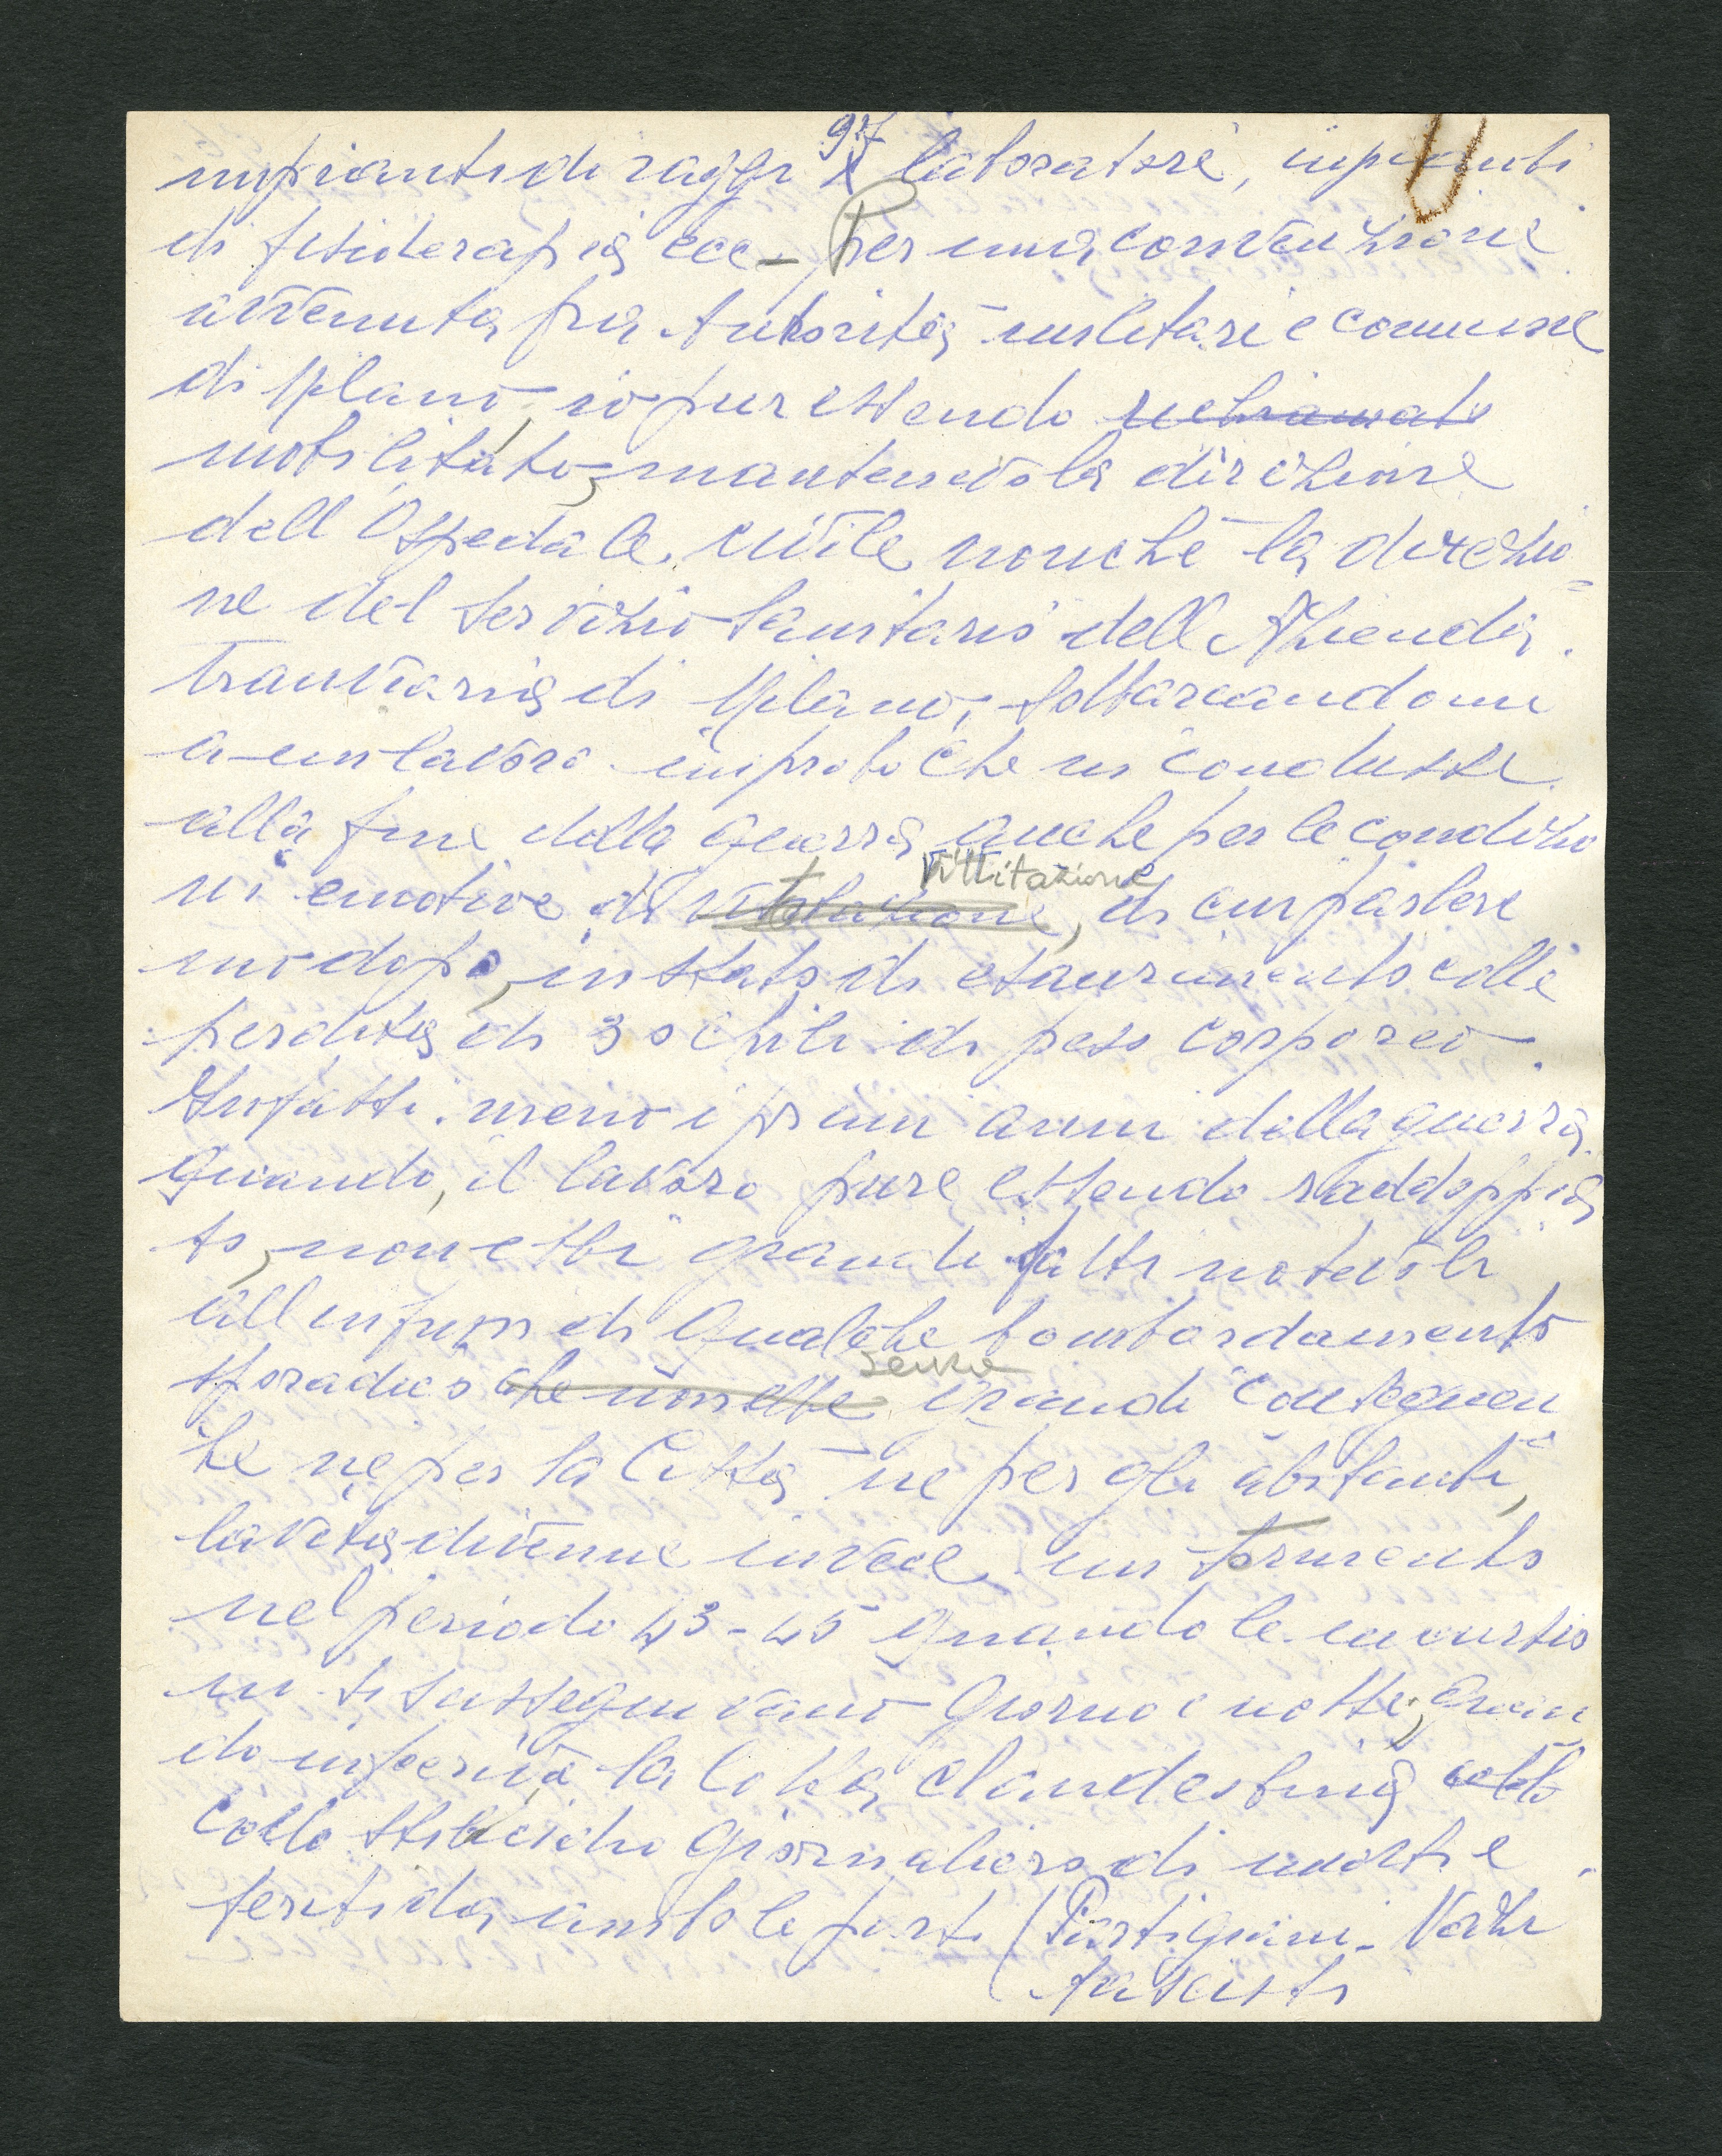 97
impianti di raggi X laboratori, impianti
di fisioterapia ecc - Per una convenzione
avvenuta fra Autorità militari e comune
di Milano, io pur essendo richiamato
mobilitato, mantenevo la direzione
dell Ospedale civile nonché la direzio=
ne del servizio sanitario dell Azienda
tranviaria di Milano, sobbarcandomi
a un lavoro improbo che mi condusse
alla fine della guerra anche per le condizio
ni emotive di vittitazione, di cui parlerò
vittitazione
modopo, in stato di esaurimento colla
perdita di 30 chili di peso corporeo.
Infatti. meno i primi anni della guerra
quando, il lavoro pure essendo raddoppia
to, non ebbi grandi fatti notevoli
all infuori di qualche bombardamento
senza
sporadico che non ebbe grandi conseguen
ze ne per la Città ne per gli abitanti,
la vita divenne invece un tormento
nel periodo 43-45 quando le incursio
ni si susseguivano giorno e notte, quan
do infieriva la lotta clandestina collo
collo stillicidio giornaliero di morti e
feriti da ambo le parti (Partigiani - Nazi
fascisti